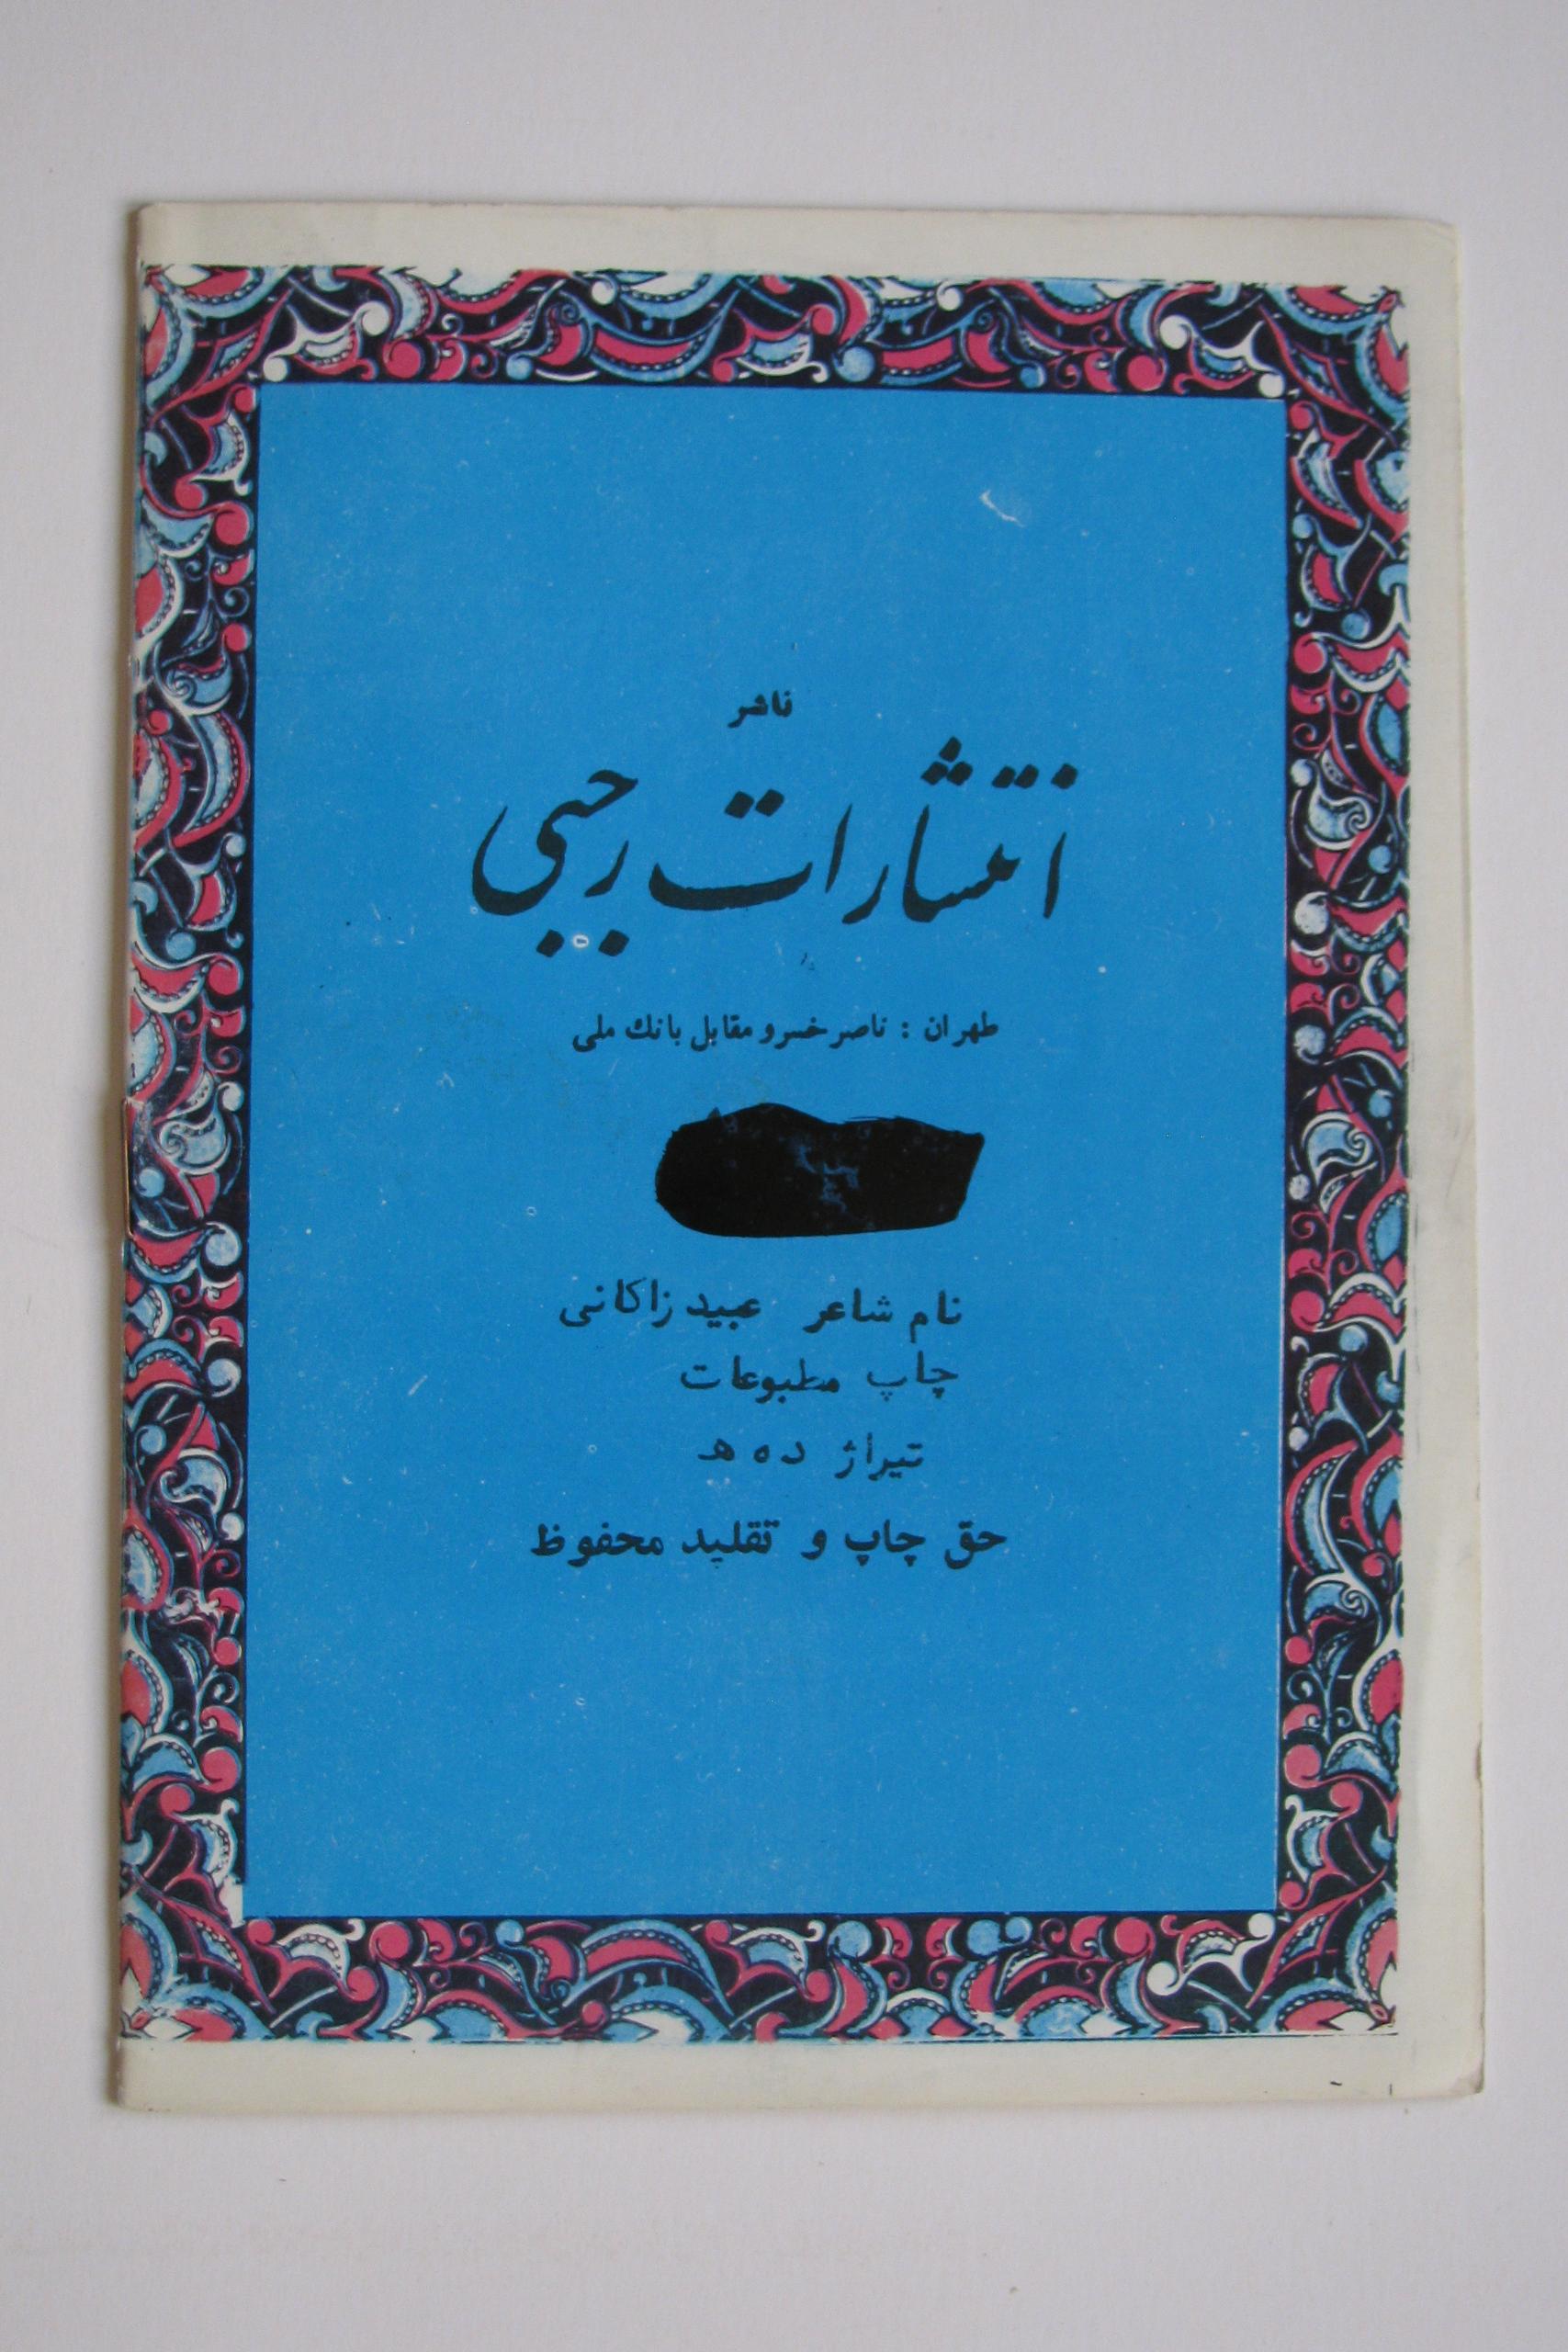 ناشر
انتشارات رجبی
طهران : ناصر خسرو مقابل بانك ملی
نام شاعر عبید زاکانی
چاپ مطبوعات
تیراژ ده ه
حق چاپ و تقلید محفوظ